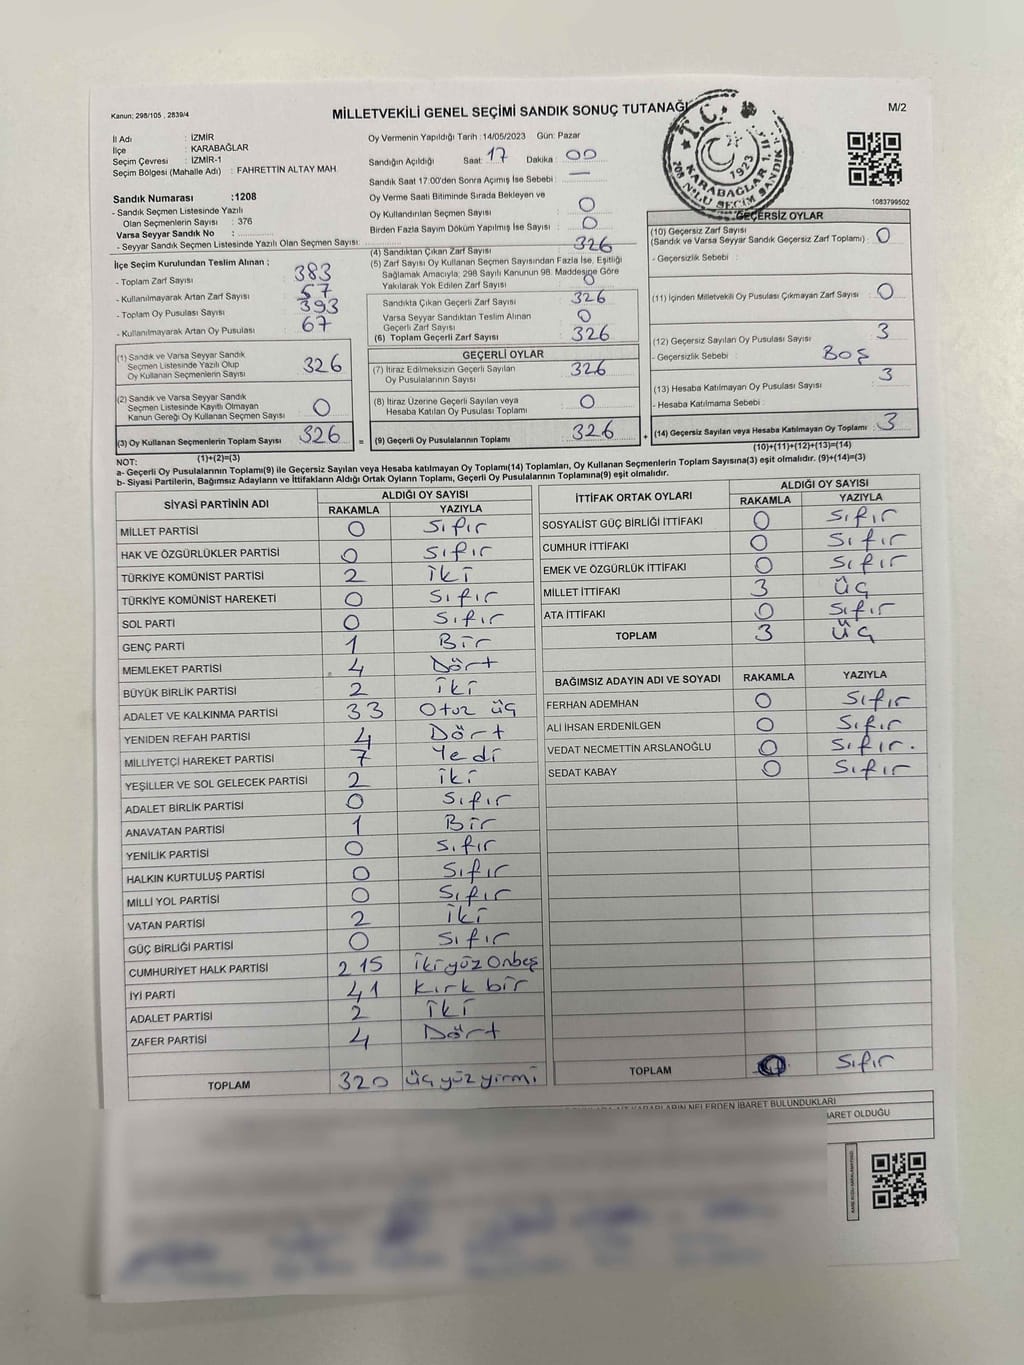 Kanun: 298/105 , 2839/4
MİLLETVEKİLİ GENEL SEÇİMİ SANDIK SONUÇ TUTANAĞI
M/2
İl Adı : İZMİR
İlçe : KARABAĞLAR
Seçim Çevresi : İZMİR-1
Seçim Bölgesi (Mahalle Adı) : FAHRETTİN ALTAY MAH.
Sandık Numarası :1208
- Sandık Seçmen Listesinde Yazılı
Olan Seçmenlerin Sayısı : 376
Varsa Seyyar Sandık No :
- Seyyar Sandık Seçmen Listesinde Yazılı Olan Seçmen Sayısı:
Oy Vermenin Yapıldığı Tarih : 14/05/2023 Gün: Pazar
Sandığın Açıldığı Saat: 17 Dakika : 00
Sandık Saat 17:00'den Sonra Açımış İse Sebebi : —
Oy Verme Saati Bitiminde Sırada Bekleyen ve
Oy Kullandırılan Seçmen Sayısı : 0
Birden Fazla Sayım Döküm Yapılmış İse Sayısı : 0
T.C.
1923
KARABAĞLAR 1.
1208 NOLU SEÇİM SANDIK
1083799502
İlçe Seçim Kurulundan Teslim Alınan ;
- Toplam Zarf Sayısı : 383
- Kullanılmayarak Artan Zarf Sayısı : 57
- Toplam Oy Pusulası Sayısı : 393
- Kullanılmayarak Artan Oy Pusulası : 67
(1) Sandık ve Varsa Seyyar Sandık
Seçmen Listesinde Yazılı Olup
Oy Kullanan Seçmenlerin Sayısı : 326
(2) Sandık ve Varsa Seyyar Sandık
Seçmen Listesinde Kayıtlı Olmayan
Kanun Gereği Oy Kullanan Seçmen Sayısı : 0
(3) Oy Kullanan Seçmenlerin Toplam Sayısı : 326 =
(1)+(2)=(3)
(4) Sandıktan Çıkan Zarf Sayısı : 326
(5) Zarf Sayısı Oy Kullanan Seçmen Sayısından Fazla İse, Eşitliği
Sağlamak Amacıyla; 298 Sayılı Kanunun 98. Maddesine Göre
Yakılarak Yok Edilen Zarf Sayısı : 0
Sandıkta Çıkan Geçerli Zarf Sayısı : 326
Varsa Seyyar Sandıktan Teslim Alınan
Geçerli Zarf Sayısı : 0
(6) Toplam Geçerli Zarf Sayısı : 326
GEÇERLİ OYLAR
(7) İtiraz Edilmeksizin Geçerli Sayılan
Oy Pusulalarının Sayısı : 326
(8) İtiraz Üzerine Geçerli Sayılan veya
Hesaba Katılan Oy Pusulası Toplamı : 0
(9) Geçerli Oy Pusulalarının Toplamı : 326 +
GEÇERSİZ OYLAR
(10) Geçersiz Zarf Sayısı
(Sandık ve Varsa Seyyar Sandık Geçersiz Zarf Toplamı) : 0
- Geçersizlik Sebebi :
(11) İçinden Milletvekili Oy Pusulası Çıkmayan Zarf Sayısı : 0
(12) Geçersiz Sayılan Oy Pusulası Sayısı : 3
- Geçersizlik Sebebi : Boş
(13) Hesaba Katılmayan Oy Pusulası Sayısı : 3
- Hesaba Katılmama Sebebi :
(14) Geçersiz Sayılan veya Hesaba Katılmayan Oy Toplamı : 3
(10)+(11)+(12)+(13)=(14)
NOT:
a- Geçerli Oy Pusulalarının Toplamı(9) ile Geçersiz Sayılan veya Hesaba katılmayan Oy Toplamı(14) Toplamları, Oy Kullanan Seçmenlerin Toplam Sayısına(3) eşit olmalıdır. (9)+(14)=(3)
b- Siyasi Partilerin, Bağımsız Adayların ve İttifakların Aldığı Ortak Oyların Toplamı, Geçerli Oy Pusulalarının Toplamına(9) eşit olmalıdır.
SİYASİ PARTİNİN ADI ALDIĞI OY SAYISI
RAKAMLA YAZIYLA
MİLLET PARTİSİ 0 Sıfır
HAK VE ÖZGÜRLÜKLER PARTİSİ 0 Sıfır
TÜRKİYE KOMÜNİST PARTİSİ 2 İki
TÜRKİYE KOMÜNİST HAREKETİ 0 Sıfır
SOL PARTİ 0 Sıfır
GENÇ PARTİ 1 Bir
MEMLEKET PARTİSİ 4 Dört
BÜYÜK BİRLİK PARTİSİ 2 İki
ADALET VE KALKINMA PARTİSİ 33 Otuz üç
YENİDEN REFAH PARTİSİ 4 Dört
MİLLİYETÇİ HAREKET PARTİSİ 7 Yedi
YEŞİLLER VE SOL GELECEK PARTİSİ 2 İki
ADALET BİRLİK PARTİSİ 0 Sıfır
ANAVATAN PARTİSİ 1 Bir
YENİLİK PARTİSİ 0 Sıfır
HALKIN KURTULUŞ PARTİSİ 0 Sıfır
MİLLİ YOL PARTİSİ 0 Sıfır
VATAN PARTİSİ 2 İki
GÜÇ BİRLİĞİ PARTİSİ 0 Sıfır
CUMHURİYET HALK PARTİSİ 215 İkiyüz Onbeş
İYİ PARTİ 41 Kırk bir
ADALET PARTİSİ 2 İki
ZAFER PARTİSİ 4 Dört
TOPLAM 320 üçyüzyirmi
İTTİFAK ORTAK OYLARI ALDIĞI OY SAYISI
RAKAMLA YAZIYLA
SOSYALİST GÜÇ BİRLİĞİ İTTİFAKI 0 Sıfır
CUMHUR İTTİFAKI 0 Sıfır
EMEK VE ÖZGÜRLÜK İTTİFAKI 0 Sıfır
MİLLET İTTİFAKI 3 üç
ATA İTTİFAKI 0 Sıfır
TOPLAM 3 üç
BAĞIMSIZ ADAYIN ADI VE SOYADI RAKAMLA YAZIYLA
FERHAN ADEMHAN 0 Sıfır
ALİ İHSAN ERDENİLGEN 0 Sıfır
VEDAT NECMETTİN ARSLANOĞLU 0 Sıfır.
SEDAT KABAY 0 Sıfır
TOPLAM 0 Sıfır
KARARLARIN NELERDEN İBARET BULUNDUKLARI
İBARET OLDUĞU